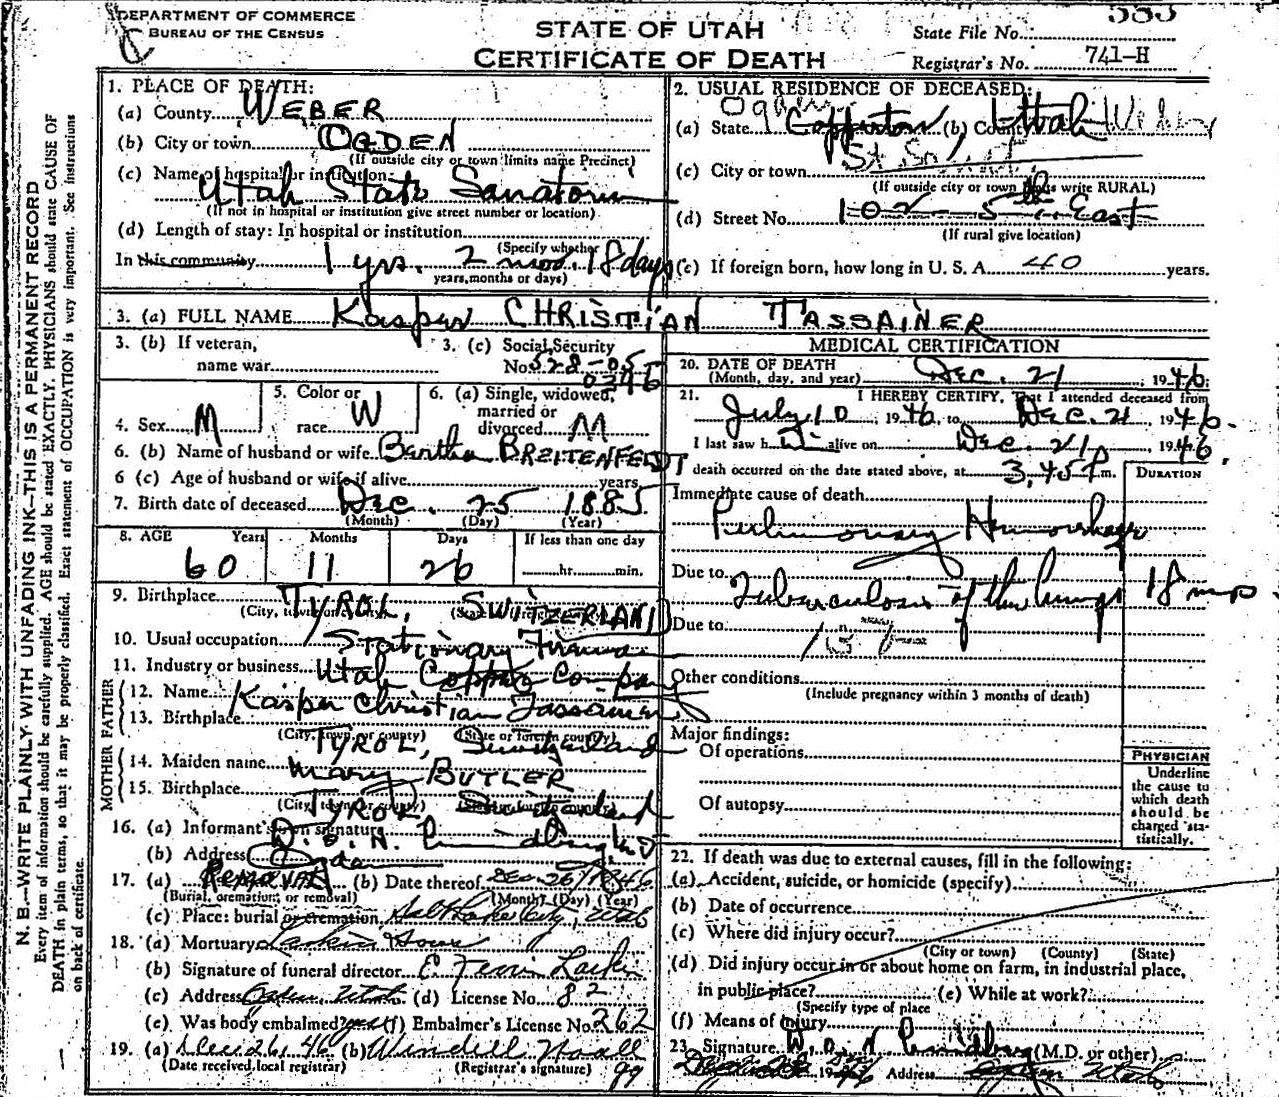 DEPARTMENT OF COMMERCE
BUREAU OF THE CENSUS
STATE OF UTAH
CERTIFICATE OF DEATH
State File No.
Registrar's No. 741-H
N. B.—WRITE PLAINLY WITH UNFADING INK—THIS IS A PERMANENT RECORD
Every item of information should be carefully supplied. AGE should be stated EXACTLY. PHYSICIANS should state CAUSE OF
DEATH in plain terms, so that it may be properly classified. Exact statement of OCCUPATION is very important. See instructions
on back of certificate.
1. PLACE OF DEATH:
(a) County WEBER
(b) City or town OGDEN
(If outside city or town limits name Precinct)
(c) Name of hospital or institution
Utah State
(If not in hospital or institution give street number or location)
(d) Length of stay: In hospital or institution
(Specify whether
In this community 1 yrs. 2 mos. 18 days
years, months or days)
2. USUAL RESIDENCE OF DECEASED:
Ogden
(a) State Copperton, (b) County Utah Weber
(c) City or town
(If outside city or town limits write RURAL)
(d) Street No. 102 - 5th East
(If rural give location)
(e) If foreign born, how long in U. S. A. 40 years.
3. (a) FULL NAME Kasper CHRISTIAN TASSAINER
3. (b) If veteran,
name war
3. (c) Social Security
No. 528-05
4. Sex M
5. Color or
race W
6. (a) Single, widowed,
married or
divorced M
6. (b) Name of husband or wife Bertha BREITENFELDT
6 (c) Age of husband or wife if alive years
7. Birth date of deceased Dec. 25 1885
(Month) (Day) (Year)
8. AGE Years Months Days If less than one day
60 11 26 hr. min.
9. Birthplace TYROL, SWITZERLAND
(City, town or county) (State or foreign country)
10. Usual occupation Stationary Fireman
11. Industry or business Utah Copper Company
FATHER
12. Name Kasper Christian Tassainer
13. Birthplace
(City, town, or county) (State or foreign country)
TYROL, Switzerland
MOTHER
14. Maiden name Mary BUTLER
15. Birthplace
(City, town or county) (State or foreign country)
TYROL Switzerland
16. (a) Informant's own signature
(b) Address Ogden
17. (a) REMOVAL (b) Date thereof Dec. 26, 1946
(Burial, cremation, or removal) (Month) (Day) (Year)
(c) Place: burial or cremation Salt Lake City, Utah
18. (a) Mortuary Larkin
(b) Signature of funeral director Larkin
(c) Address Ogden, Utah (d) License No. 82
(e) Was body embalmed? yes (f) Embalmer's License No. 262
19. (a) Dec 26, 46 (b)
(Date received local registrar) (Registrar's signature)
MEDICAL CERTIFICATION
20. DATE OF DEATH
(Month, day, and year) Dec. 21, 1946.
21. I HEREBY CERTIFY, That I attended deceased from
July 10, 1946, to Dec. 21, 1946.
I last saw him alive on Dec. 21, 1946.
death occurred on the date stated above, at 3:45 P m.
DURATION
Immediate cause of death
Pulmonary Hemorrhage
Due to
Tuberculosis of the lungs 18 mos.
Due to
Other conditions
(Include pregnancy within 3 months of death)
Major findings:
Of operations
Of autopsy
PHYSICIAN
Underline
the cause to
which death
should be
charged sta-
tistically.
22. If death was due to external causes, fill in the following:
(a) Accident, suicide, or homicide (specify)
(b) Date of occurrence
(c) Where did injury occur?
(City or town) (County) (State)
(d) Did injury occur in or about home on farm, in industrial place,
in public place? (e) While at work?
(Specify type of place
(f) Means of injury
23. Signature (M.D. or other)
Address Ogden Utah